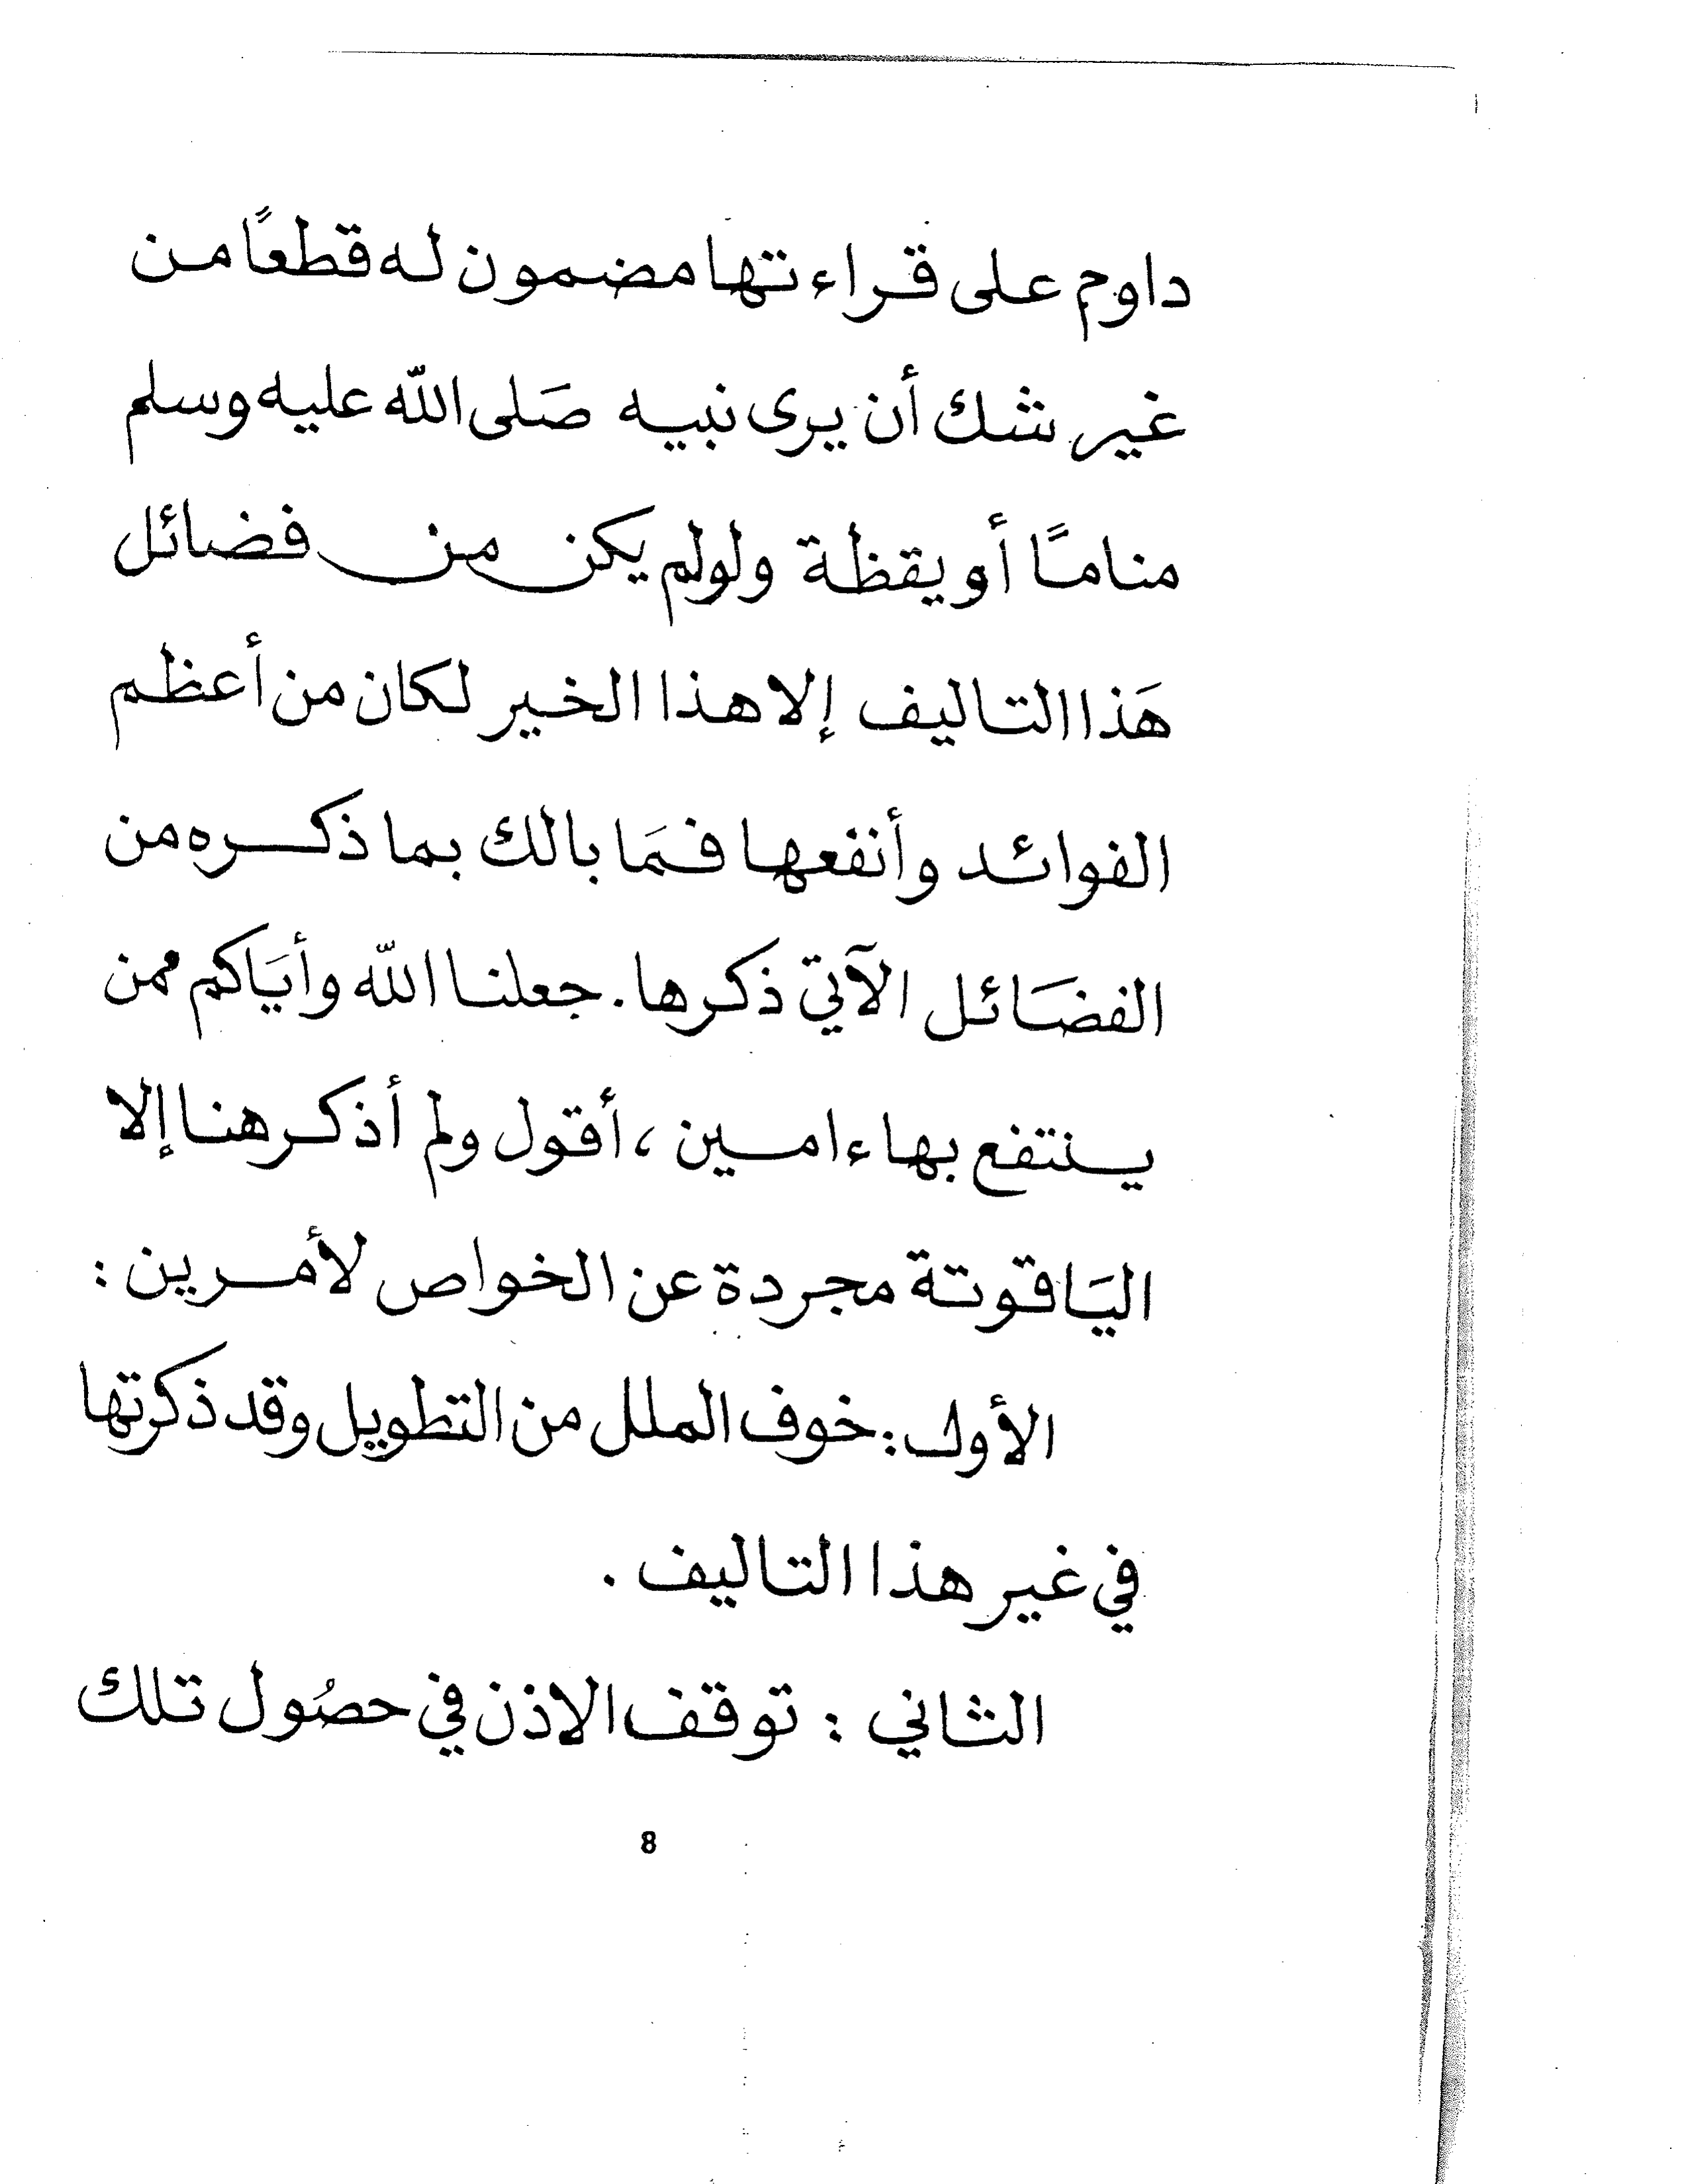 داوم على قراءتها مضمون له قطعًا من
غير شك أن يرى نبيه صَلى اللّه عليه وسلم
منامًا أو يقظة ولولم يكن من فضائل
هَذا التاليف إلا هذا الخير لكان من أعظم
الفوائد وأنفعها فمَا بالك بما ذكره من
الفضَائل الآتي ذكرها. جعلنا اللّه وأيَاكم ممن
ينتفع بها ءامين ، أقول ولم أذكر هنا إلا
اليَاقوتة مجردة عن الخواص لأمرين :
الأول : خوف الملل من التطويل وقد ذكرتها
في غير هذا التاليف .
الثاني : توقف الاذن في حصُول تلك
8